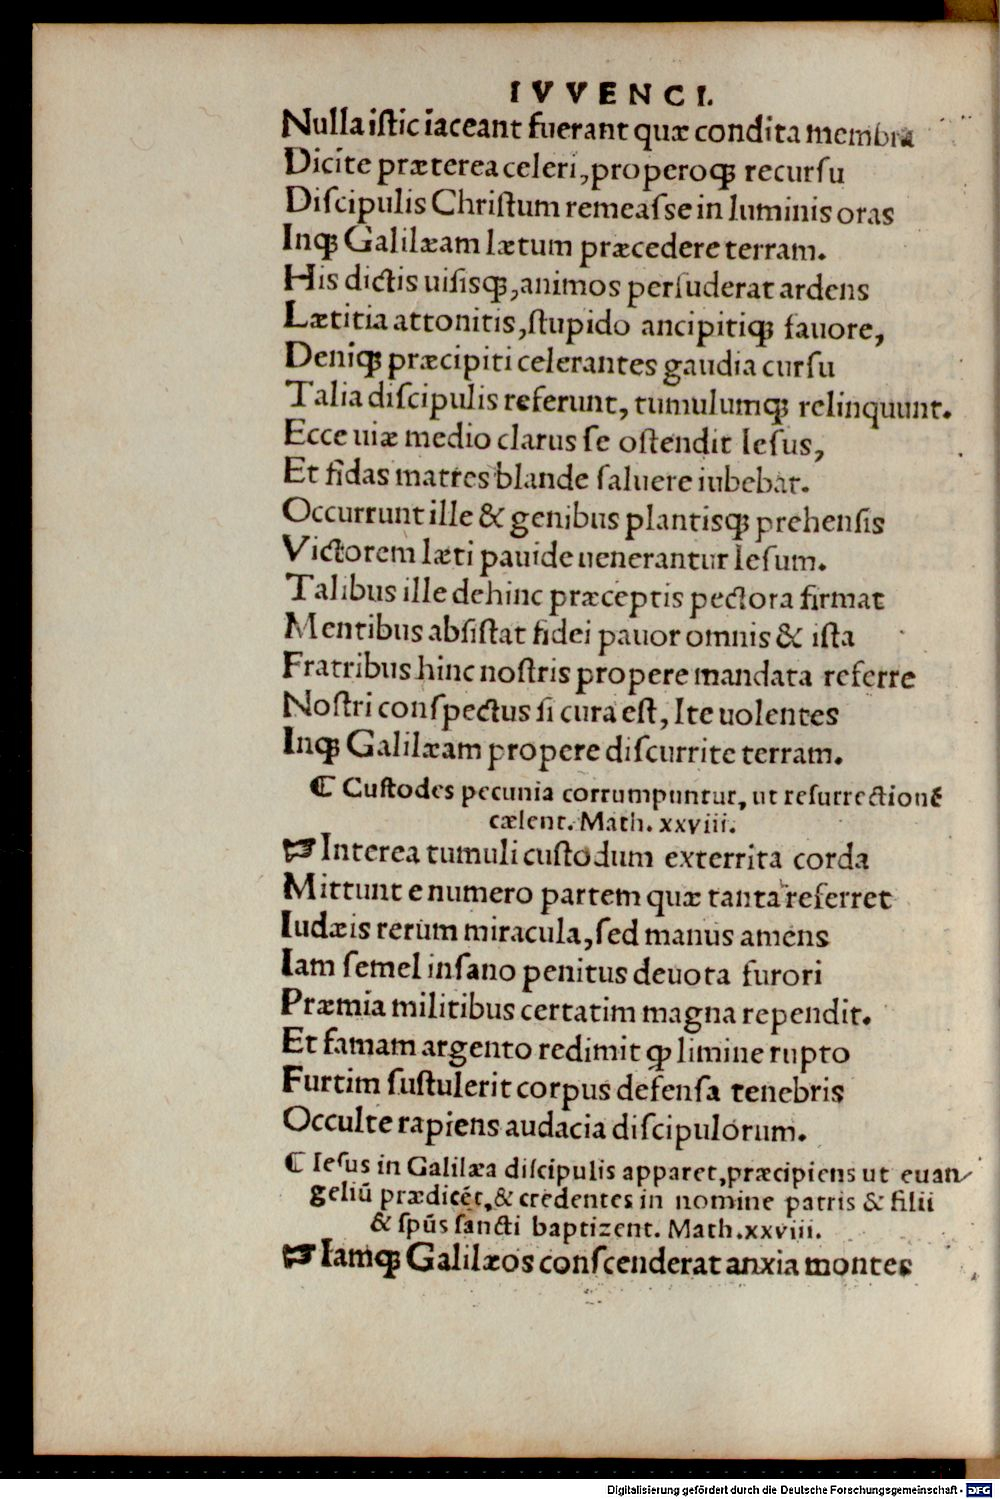 IVVENCI.
Nulla iſtic iaceant fuerant quæ condita membra
Dicite præterea celeri, properoqꝫ recurſu
Diſcipulis Chriſtum remeaſſe in luminis oras
Inqꝫ Galilæam lætum præcedere terram.
His dictis uiſisqꝫ, animos perſuderat ardens
Lætitia attonitis, ſtupido ancipitiqꝫ fauore,
Deniqꝫ præcipiti celerantes gaudia curſu
Talia diſcipulis referunt, tumulumqꝫ relinquunt.
Ecce uiæ medio clarus ſe oſtendit Ieſus,
Et fidas matres blande ſaluere iubebat.
Occurrunt ille & genibus plantisqꝫ prehenſis
Victorem læti pauide uenerantur Ieſum.
Talibus ille dehinc præceptis pectora firmat
Mentibus abſiſtat fidei pauor omnis & iſta
Fratribus hinc noſtris propere mandata referre
Noſtri conſpectus ſi cura eſt, Ite uolentes
Inqꝫ Galilæam propere diſcurrite terram.
⸿ Cuſtodes pecunia corrumpuntur, ut reſurrectionẽ
cælent. Math. xxviii.
☞ Interea tumuli cuſtodum exterrita corda
Mittunt e numero partem quæ tanta referret
Iudæis rerum miracula, ſed manus amens
Iam ſemel inſano penitus deuota furori
Præmia militibus certatim magna rependit.
Et famam argento redimit ꝙ limine rupto
Furtim ſuſtulerit corpus defenſa tenebris
Occulte rapiens audacia diſcipulorum.
⸿ Ieſus in Galilæa diſcipulis apparet, præcipiens ut euan⸗
geliũ prædicẽt, & credentes in nomine patris & filii
& ſpũs ſancti baptizent. Math. xxviii.
☞ Iamqꝫ Galilæos conſcenderat anxia montes
Digitalisierung gefördert durch die Deutsche Forschungsgemeinschaft - DFG